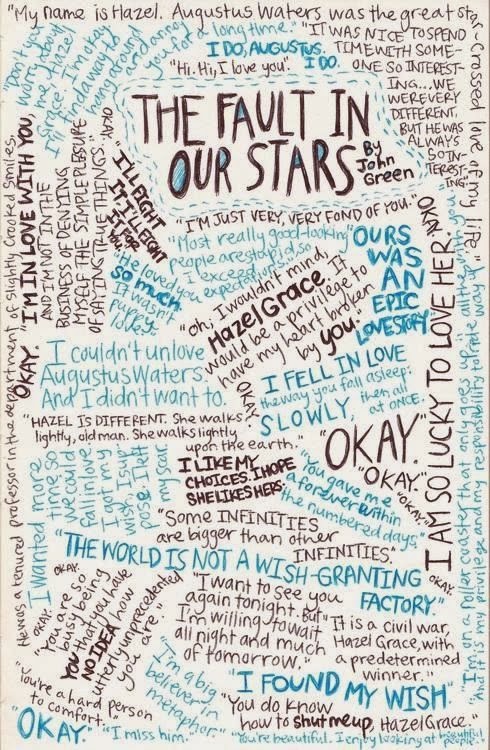 "My name is Hazel. Augustus Waters was the great star-crossed love of my life."
"Don't you
worry about
me, Hazel
Grace. I'm okay.
I'll find a way to
hang around
and annoy
you for a long time."
I DO, AUGUSTUS.
I DO.
"Hi. Hi, I love you".
"IT WAS NICE TO SPEND
TIME WITH SOME-
ONE SO INTEREST-
ING...WE
WERE VERY
DIFFERENT,
BUT HE WAS
ALWAYS
SO IN-
TEREST-
ING.
THE FAULT IN
OUR STARS
By
John
Green
"I'M IN LOVE WITH YOU,
AND I'M NOT IN THE
BUSINESS OF DENYING
MYSELF THE SIMPLE PLEASURE
OF SAYING TRUE THINGS."
OKAY.
"I'LL FIGHT
IT. I'LL FIGHT
IT FOR
YOU."
"I'M JUST VERY, VERY FOND OF YOU."
"Most really good-looking
people are stupid, so
I exceed
expectations."
OURS
WAS
AN
EPIC
LOVE STORY.
"He loved you
so much.
It wasn't
puppy
love."
"Oh, I wouldn't mind,
Hazel Grace. It
would be a privilege to
have my heart broken
by you."
OKAY.
I AM SO LUCKY TO LOVE HER.
OKAY.
OKAY.
I couldn't unlove
Augustus Waters.
And I didn't want to.
I FELL IN LOVE
the way you fall asleep:
SLOWLY, then all
at ONCE.
OKAY.
"HAZEL IS DIFFERENT. She walks
lightly, old man. She walks lightly
upon the earth."
"OKAY."
"OKAY."
"OKAY."
I wanted more
time so
we could
fall in love
I got my
wish I sup-
pose. I left
my scar.
I LIKE MY
CHOICES. I HOPE
SHE LIKES HERS.
"You gave me
a forever within
the numbered days."
"Some INFINITIES
are bigger than other
INFINITIES."
"THE WORLD IS NOT A WISH-GRANTING
FACTORY."
He was a tenured professor in the department of slightly crooked smiles.
OKAY.
OKAY.
"You are so
busy being
YOU that you have
NO IDEA how
utterly unprecedented
you are."
"I want to see you
again tonight. But
I'm willing to wait
all night and much
of tomorrow."
"It is a civil war,
Hazel Grace, with
a predetermined
winner."
"I'm on a roller coaster that only goes up
and it is my privilege and my responsibility to ride all the way up with you.
"I'm a big
believer in
metaphor"
"I FOUND MY WISH".
"You're a hard person
to comfort."
"You do know
how to shut me up, Hazel Grace."
"OKAY."
"I miss him."
"You're beautiful. I enjoy looking at beautiful
people."